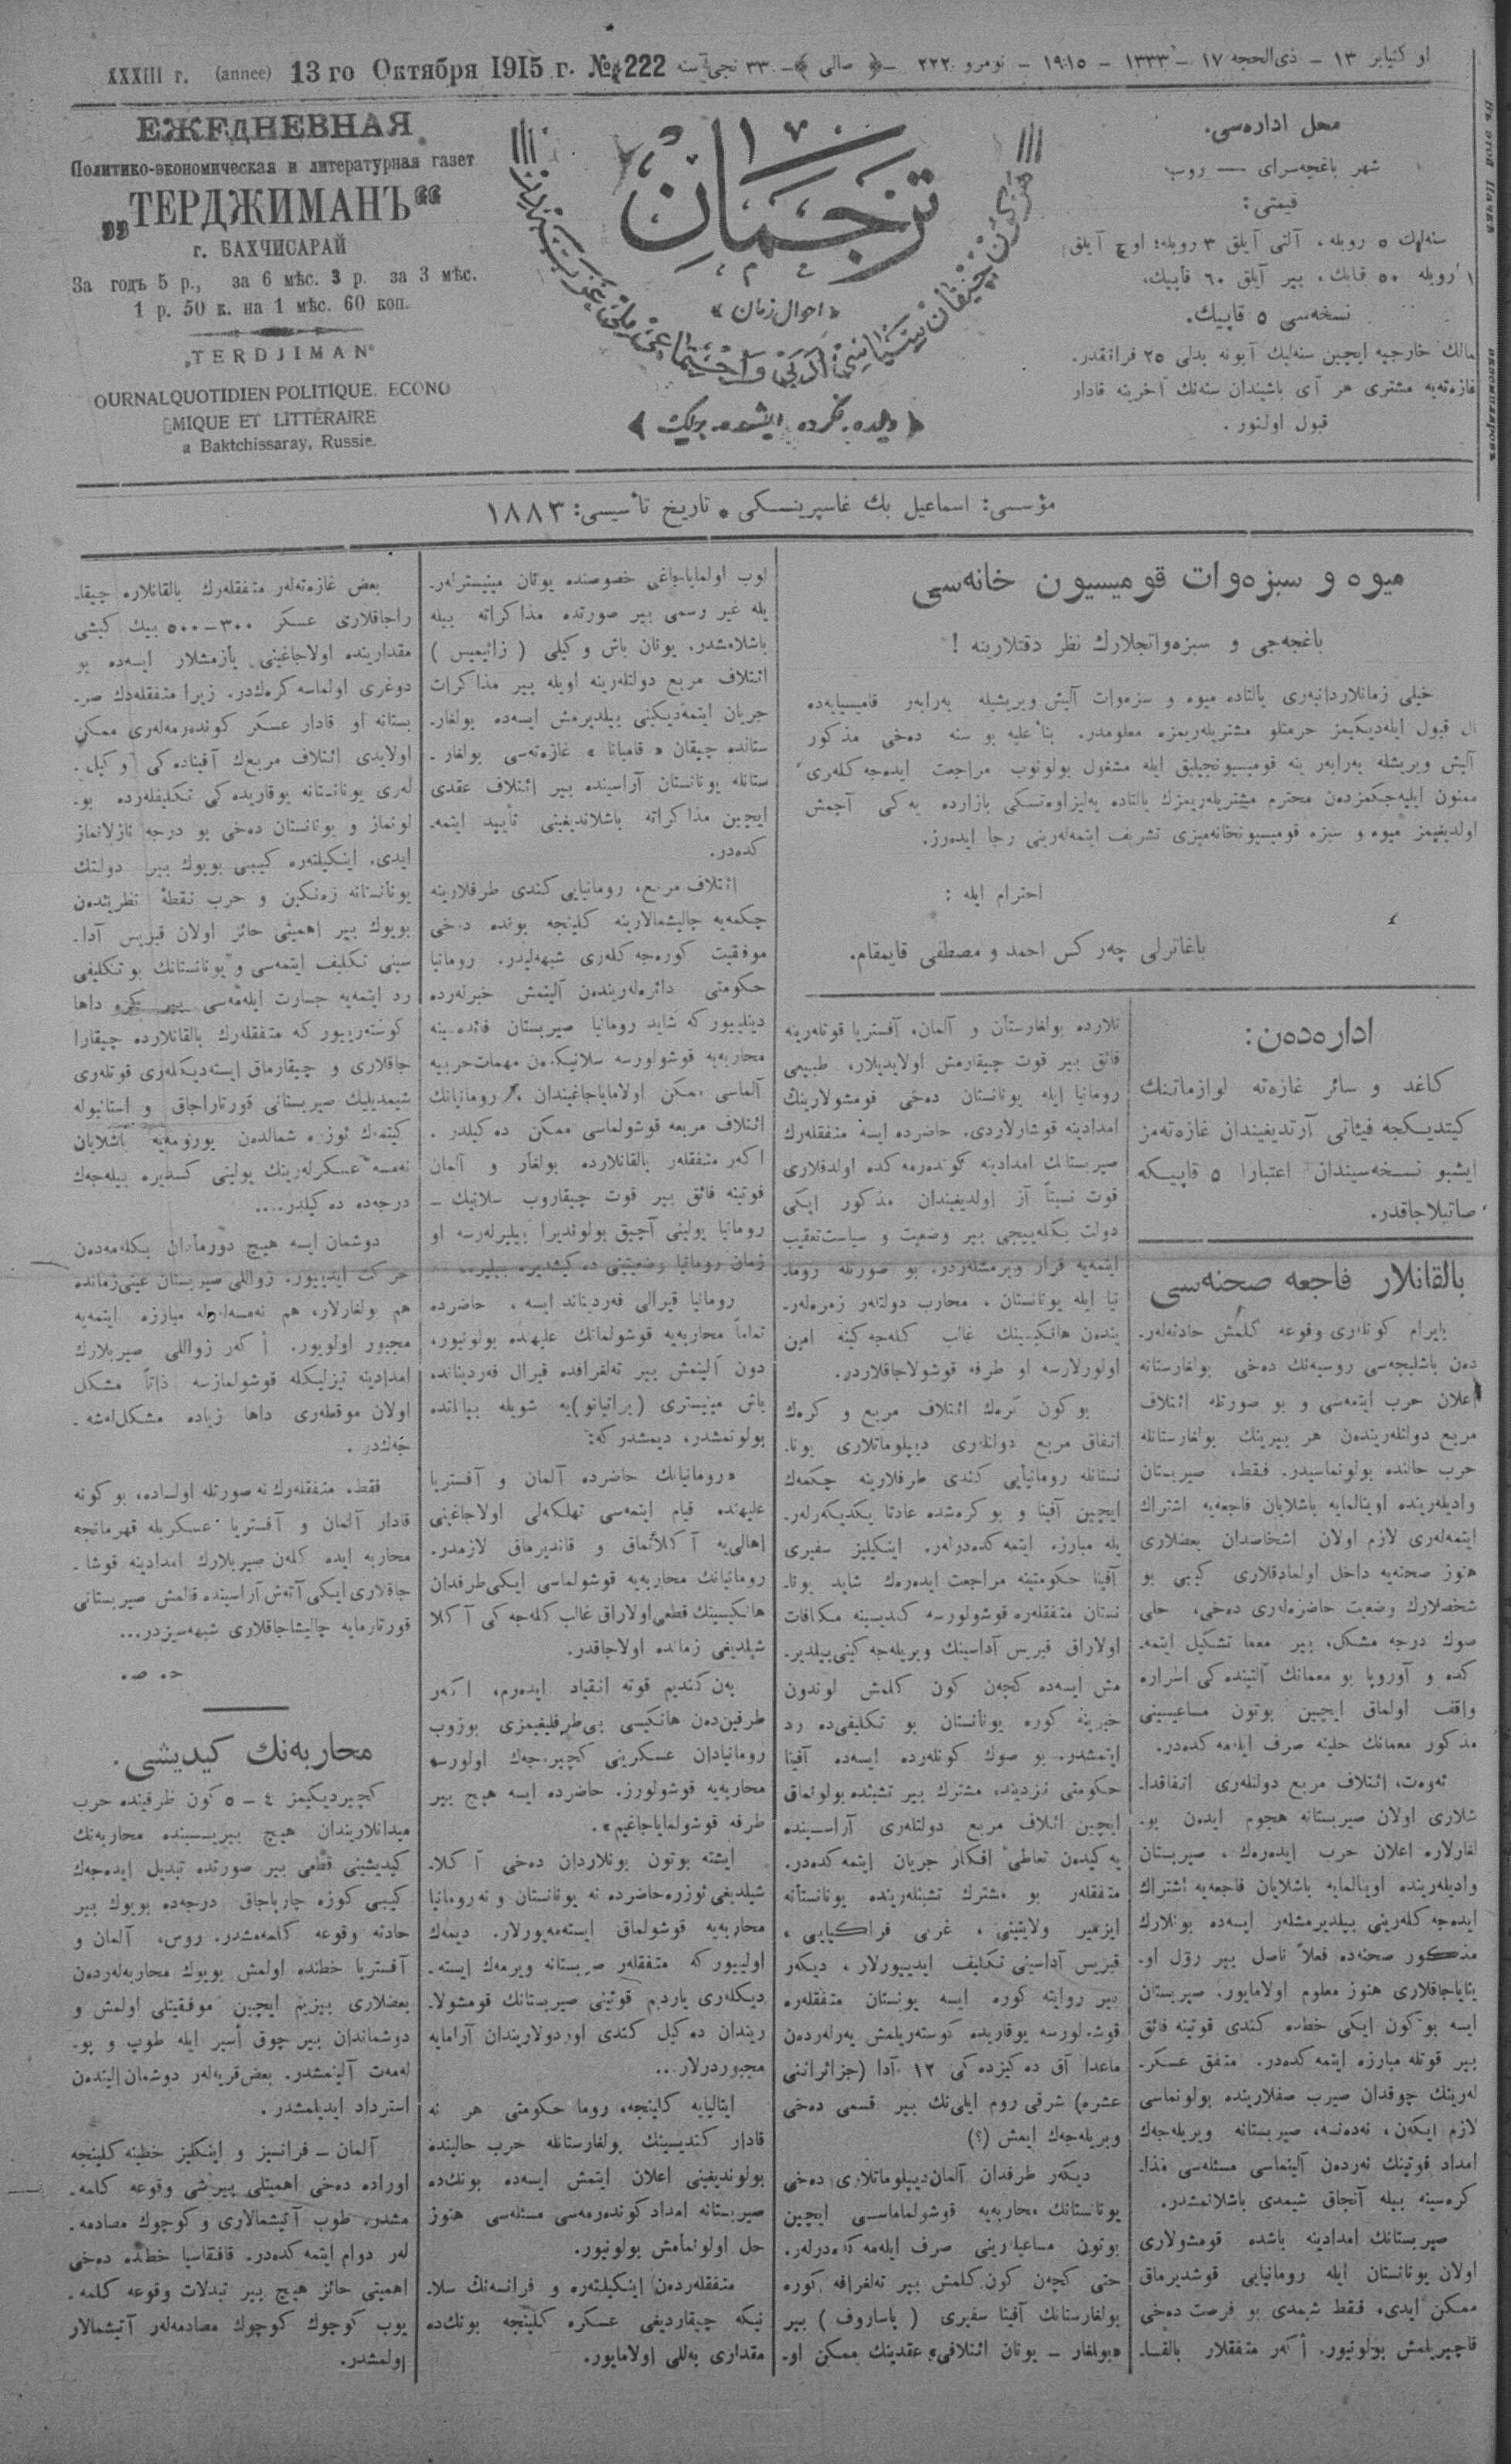 XXXIII г. (annee) 13 го Октября 1915 г. № 222
او كتيابر ١٣ – ذی‌الحجه ١٧ – ١٣٣٣ – ١٩١٥ – نومرو ٢٢٢ –﴿ صالی ﴾– ٣٣ نجی سنه
ЕЖЕДНЕВНАЯ
Политико-экономическая и литературная газет
„ТЕРДЖИМАНЪ“
г. БАХЧИСАРАЙ
За годъ 5 р., за 6 мѣс. 3 р. за 3 мѣс.
1 р. 50 к. на 1 мѣс. 60 коп.
„TERDJIMAN“
OURNALQUOTIDIEN POLITIQUE, ECONO
MIQUE ET LITTÉRAIRE
a Baktchissaray, Russie.
ترجمان
﴿ احوال زمان ﴾
﴿ دیلده، فکرده، ایشده بیرلیك ﴾
محل اداره‌سی.
شهر باغچه‌سرای — روسیه
قیمتی:
سنه‌لك ٥ روبله، آلتی آیلق ٣ روبله؛ اوچ آیلق
١ روبله ٥٠ قاپك، بیر آیلق ٦٠ قاپیك،
نسخه‌سی ٥ قاپیك.
مالك خارجیه ایچین سنه‌لیك آبونه بدلی ٢٥ فرانقدر.
غازه‌ته‌یه مشتری هر آی باشیندان سنه‌نك آخرینه قادار
قبول اولنور.
مؤسسی: اسماعیل بك غاسپرینسكی • تاریخ تأسیسی: ١٨٨٣
میوه و سبزه‌وات قومیسیون خانه‌سی
باغچه‌جی و سبزه‌واتجلارك نظر دقتلارینه !
خیلی زمانلاردانبه‌ری یالتاده میوه و سبزه‌وات آلیش ویریشیله به‌رابه‌ر قامیسیایه‌ده
ال قبول ایله‌دیكیمز حرمتلو مشتریله‌ریمزه معلومدر. بناءً علیه بو سنه ده‌خی مذكور
آلیش ویریشله به‌رابه‌ر ینه قومیسیونجیلیق ایله مشغول بولونوب مراجعت ایده‌جه‌كله‌ری
ممنون ایلیه‌جكمزدن محترم مشتریله‌ریمزك یالتاده یه‌لیزاوه‌تسكی بازارده یه‌كی آچمش
اولدیغیمز میوه و سبزه قومیسیونخانه‌میزی تشریف ایتمه‌له‌رینی رجا ایده‌رز.
احترام ایله :
باغاترلی چه‌ركس احمد و مصطفی قایمقام.
اداره‌ده‌ن:
كاغد و سائر غازه‌ته لوازماتنك
كیتدیكجه فیئاتی آرتدیغیندان غازه‌ته‌مز
ایشبو نسخه‌سیندان اعتبارا ٥ قاپیكه
صاتیلاجاقدر.
بالقانلار فاجعه صحنه‌سی
بایرام كونله‌ری وقوعه كلمش حادثه‌له‌ر-
ده‌ن باشلیجه‌سی روسیه‌نك ده‌خی بولغارستانه
اعلان حرب ایتمه‌سی و بو صورتله ائتلاف
مربع دولتله‌ریندن هر بیرینك بولغارستانله
حرب حالنده بولونماسیدر. فقط، صیربستان
وادیله‌رینده اوینالمایه باشلایان فاجعه‌یه اشتراك
ایتمه‌له‌ری لازم اولان اشخاصدان بعضلاری
هنوز صحنه‌یه داخل اولمادقلاری كیبی بو
شخصلارك وضعیت حاضره‌له‌ری ده‌خی، حلی
صوك درجه مشكل، بیر معما تشكیل ایتمه-
كده و آوروپا بو معمانك آلتینده كی اسراره
واقف اولماق ایچین بوتون مساعیسینی
مذكور معمانك حلینه صرف ایله‌مه كده‌در.
ئه‌وه‌ت، ائتلاف مربع دولتله‌ری اتفاقدا-
شلاری اولان صیربستانه هجوم ایده‌ن بو-
لغارلاره اعلان حرب ایده‌ره‌ك، صیربستان
وادیله‌رینده اوینالمایه باشلایان فاجعه‌یه اشتراك
ایده‌جه‌كله‌رینی بیلدیرمشله‌ر ایسه‌ده بونلارك
مذكور صحنه‌ده فعلاً ناصل بیر رول او-
ینایاجاقلاری هنوز معلوم اولامایور. صیربستان
ایسه بو كون ایكی خطده كندی قوتینه فائق
بیر قوتله مبارزه ایتمه كده‌در. متفق عسكر-
له‌رینك چوقدان صیرب صفلارینده بولونماسی
لازم ایكه‌ن، نه‌ده‌نسه، صیربستانه ویریله‌جه‌ك
امداد قوتینك نه‌رده‌ن آلینماسی مسئله‌سی مذا-
كره‌سینه بیله آنجاق شیمدی باشلانمشدر.
صیربستانك امدادینه باشده قومشولاری
اولان یونانستان ایله رومانیایی قوشدیرماق
ممكن ایدی، فقط شیمدی بو فرصت ده‌خی
قاچیریلمش بولونیور. اكه‌ر متفقلار بالقا-
نلارده بولغارستان و آلمان، آفستریا قوتله‌رینه
فائق بیر قوت چیقارمش اولایدیلار، طبیعی
رومانیا ایله یونانستان ده‌خی قومشولارینك
امدادینه قوشارلاردی. حاضرده ایسه متفقله‌رك
صیربستانك امدادینه كونده‌رمه كده اولدقلاری
قوت نسبتاً آز اولدیغیندان مذكور ایكی
دولت بكله‌ییجی بیر وضعیت و سیاست تعقیب
ایتمه‌یه قرار ویرمشله‌ردر. بو صورتله روما-
نیا ایله یونانستان، محارب دولتله‌ر زمره‌له‌ر-
یندن هانكیسینك غالب كله‌جه‌كینه امین
اولورلارسه او طرفه قوشولاجاقلاردر.
بو كون كره‌ك ائتلاف مربع و كره‌ك
اتفاق مربع دولتله‌ری دیپلوماتلاری یونا-
نستانله رومانیایی كندی طرفلارینه چكمه‌ك
ایچین آفینا و بوكره‌شده عادتا یكدیكه‌رله‌ر-
یله مبارزه ایتمه كده‌درله‌ر. اینكیلیز سفیری
آفینا حكومتینه مراجعت ایده‌ره‌ك شاید یونا-
نستان متفقله‌ره قوشولورسه كندیسینه مكافات
اولاراق قبریس آداسینك ویریله‌جه‌كینی بیلدیر-
مش ایسه‌ده كچه‌ن كون كلمش لوندون
خبرینه كوره یونانستان بو تكلیفی‌ده رد
ایتمشدر. بو صوك كونله‌رده ایسه‌ده آفینا
حكومتی نزدینده مشترك بیر تشبثده بولونماق
ایچین ائتلاف مربع دولتله‌ری آراسینده
یه‌كیده‌ن تعاطی افكار جریان ایتمه كده‌در.
متفقله‌ر بو مشترك تشبثله‌رینده یونانستانه
ایزمیر ولایتینی، غربی فراكیایی،
قبریس آداسینی تكلیف ایدییورلار، دیكه‌ر
بیر روایته كوره ایسه یونستان متفقله‌ره
قوشولورسه یوقاریده كوسته‌ریلمش یه‌رله‌رده‌ن
ماعدا آق ده‌كیزده‌كی ١٢ آدا (جزائراثنی
عشره) شرقی روم ایلی‌نك بیر قسمی ده‌خی
ویریله‌جه‌ك ایمش (؟)
دیكه‌ر طرفدان آلمان دیپلوماتلاری ده‌خی
یونانستانك محاربه‌یه قوشولماماسی ایچین
بوتون مساعیله‌رینی صرف ایله‌مه كده‌درله‌ر.
حتی كچه‌ن كون كلمش بیر ته‌لغرافه كوره
بولغارستانك آفینا سفیری ( پاساروف ) بیر
«بولغار – یونان ائتلافی» عقدینك ممكن او-
لوب اولمایاجاغی خصوصنده یونان مینیسترله‌ر-
یله غیر رسمی بیر صورتده مذاكراته بیله
باشلامشدر. یونان باش وكیلی ( زائیمیس )
ائتلاف مربع دولتله‌رینه اویله بیر مذاكرات
جریان ایتمه‌دیكینی بیلدیرمش ایسه‌ده بولغار-
ستانده چیقان « قامبانا » غازه‌ته‌سی بولغار-
ستانله یونانستان آراسینده بیر ائتلاف عقدی
ایچین مذاكراته باشلاندیغینی تأیید ایتمه-
كده‌در.
ائتلاف مربع، رومانیایی كندی طرفلارینه
چكمه‌یه چالیشمالارینه كلینجه بونده ده‌خی
موفقیت كوره‌جه‌كله‌ری شبهه‌لیدر. رومانیا
حكومتی دائره‌له‌رینده‌ن آلینمش خبرله‌رده
دینلییور كه شاید رومانیا صیربستان فائده‌سینه
محاربه‌یه قوشولورسه سلانیكده‌ن مهمات حربیه
آلماسی ممكن اولامایاجاغیندان رومانیانك
ائتلاف مربعه قوشولماسی ممكن ده‌كیلدر.
اكه‌ر متفقله‌ر بالقانلارده بولغار و آلمان
قوتینه فائق بیر قوت چیقاروب سلانیك –
رومانیا یولینی آچیق بولوندیرا بیلیرله‌رسه او
زمان رومانیا وضعیتینی ده‌كیشدیره بیلیر..
رومانیا قیرالی فه‌ردیناند ایسه، حاضرده
تماماً محاربه‌یه قوشولمانك علیهنده بولونیور،
دون آلینمش بیر ته‌لغرافده قیرال فه‌ردیناند،
باش مینیستری (براتیانو)یه شویله بیاناتده
بولونمشدر، دیمشدر كه:
«رومانیانك حاضرده آلمان و آفستریا
علیهنده قیام ایتمه‌سی تهلكه‌لی اولاجاغینی
اهالی‌یه آكلاتماق و قاندیرماق لازمدر.
رومانیانك محاربه‌یه قوشولماسی ایكی طرفدان
هانكیسینك قطعی اولاراق غالب كله‌جه‌كی آكلا
شیلدیغی زمانده اولاجاقدر.
به‌ن كندیم قوته انقیاد ایده‌رم، اكه‌ر
طرفین‌ده‌ن هانكیسی بی‌طرفلیغیمزی بوزوب
رومانیادان عسكرینی كچیره‌جه‌ك اولورسه
محاربه‌یه قوشولورز. حاضرده ایسه هیچ بیر
طرفه قوشولمایاجاغیم».
ایشته بوتون بونلاردان ده‌خی آكلا-
شیلدیغی ئوزره حاضرده نه یونانستان و نه رومانیا
محاربه‌یه قوشولماق ایسته‌مه‌یورلار. دیمه‌ك
اولییور كه متفقله‌ر صربستانه ویرمه‌ك ایسته-
دیكله‌ری یاردیم قوتینی صیربستانك قومشولا-
ریندان ده‌كیل كندی اوردولاریندان آرامایه
مجبوردرلار...
ایتالیایه كلینجه، روما حكومتی هر نه
قادار كندیسینك بولغارستانله حرب حالینده
بولوندیغینی اعلان ایتمش ایسه‌ده بونك‌ده
صیربستانه امداد كونده‌رمه‌سی مسئله‌سی هنوز
حل اولونمامش بولونیور.
متفقله‌رده‌ن اینكیلیتره و فرانسه‌نك سلا-
نیكه چیقاردیغی عسكره كلینجه بونك‌ده
مقداری به‌للی اولامایور.
بعض غازه‌ته‌له‌ر متفقله‌رك بالقانلاره چیقا-
راجاقلاری عسكر ٣٠٠–٥٠٠ بیك كیشی
مقدارینده اولاجاغینی یازمشلار ایسه‌ده بو
دوغری اولماسه كره‌كدر. زیرا متفقله‌رك صر-
بستانه او قادار عسكر كونده‌رمه‌له‌ری ممكن
اولایدی ائتلاف مربع‌ك آفیناده‌كی وكیل-
له‌ری یونانستانه یوقاریده‌كی تكلیفله‌رده بو-
لونماز و یونانستان ده‌خی بو درجه نازلانماز
ایدی. اینكیلته‌ره كیبی بویوك بیر دولتك
یونانستانه زه‌نكین و حرب نقطهٔ نظریندن
بویوك بیر اهمیتی حائز اولان قبریس آدا-
سینی تكلیف ایتمه‌سی و یونانستانك بو تكلیفی
رد ایتمه‌یه جسارت ایله‌مه‌سی بیر كره داها
كوسته‌رییور كه متفقله‌رك بالقانلارده چیقارا
جاقلاری و چیقارماق ایسته‌دیكله‌ری قوتله‌ری
شیمدیلیك صیربستانی قورتاراجاق و استانبوله
كیتمه‌ك ئوزره شمالده‌ن یورومه‌یه باشلایان
نه‌مسه عسكرله‌رینك یولینی كسدیره بیله‌جه‌ك
درجه‌ده ده‌كیلدر....
دوشمان ایسه هیچ دورمادان بكله‌مه‌ده‌ن
حركت ایدییور. زواللی صیربستان عینی زمانده
هم بولغارلار، هم نه‌مسه‌له‌رله مبارزه ایتمه‌یه
مجبور اولویور. اكه‌ر زواللی صیربلارك
امدادینه تیزلیكله قوشولمازسه ذاتاً مشكل
اولان موقعله‌ری داها زیاده مشكل‌له‌شه-
جه‌كدر.
فقط، متفقله‌رك نه صورتله اولساده، بوكونه
قادار آلمان و آفستریا عسكریله قهرمانجه
محاربه ایده كله‌ن صیربلارك امدادینه قوشا-
جاقلاری ایكی آتش آراسینده قالمش صیربستانی
قورتارمایه چالیشاجاقلاری شبهه‌سیزدر...
ح. ص.
محاربه‌نك كیدیشی.
كچیردیكیمز ٤ – ٥ كون ظرفینده حرب
میدانلاریندان هیچ بیریسینده محاربه‌نك
كیدیشینی قطعی بیر صورتده تبدیل ایده‌جه‌ك
كیبی كوزه چارپاجاق درجه‌ده بویوك بیر
حادثه وقوعه كلمه‌مشدر. روس، آلمان و
آفستریا خطنده اولمش بویوك محاربه‌له‌رده‌ن
بعضلاری بیزیم ایچین موفقیتلی اولمش و
دوشماندان بیر چوق أسیر ایله طوپ و پو-
له‌مه‌ت آلینمشدر. بعض قریه‌له‌ر دوشمان الینده‌ن
استرداد ایدیلمشدر.
آلمان – فرانسیز و اینكلیز خطینه كلینجه
اوراده ده‌خی اهمیتلی بیرشی وقوعه كلمه-
مشدر، طوپ آتیشمالاری و كوچوك مصادمه-
له‌ر دوام ایتمه كده‌در. قافقاسیا خطنده ده‌خی
اهمیتی حائز هیچ بیر تبدلات وقوعه كلمه-
یوب كوچوك كوچوك مصادمه‌له‌ر آتیشمالار
اولمشدر.